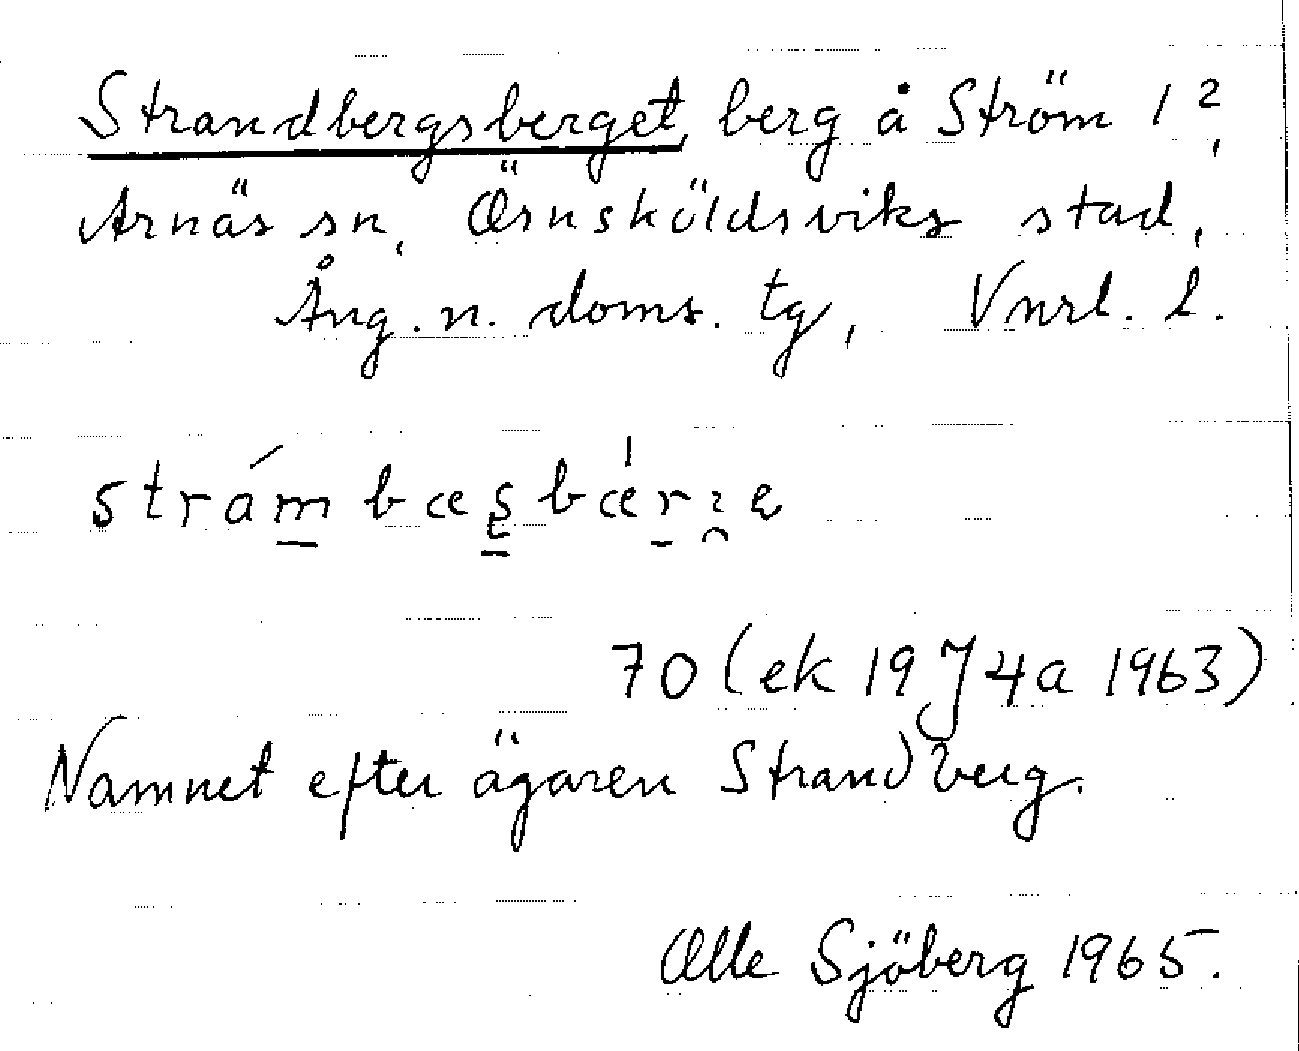 Strandbergsberget, berg å Ström 1²,
Arnäs sn, Örnsköldsviks stad,
Ång. n. doms. tg, Vnrl. l.
70 (ek 19 J 4a 1963)
Namnet efter ägaren Strandberg.
Olle Sjöberg 1965.